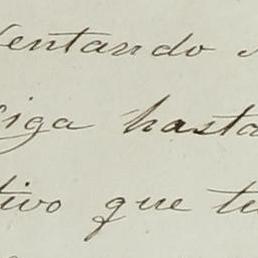 entando
iga hasta
tivo que tu